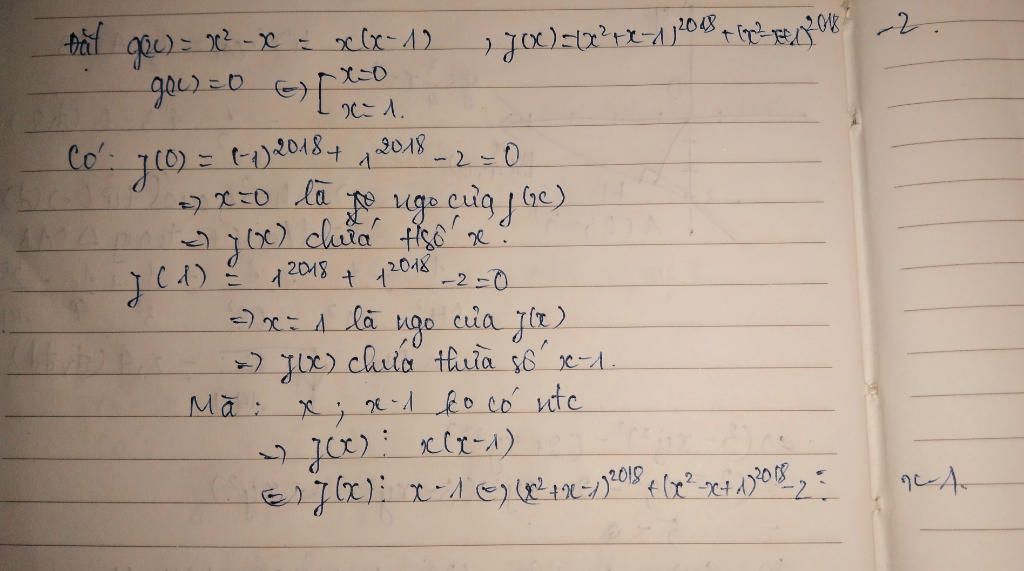 Đặt g(x) = x² - x = x(x-1) , f(x) = (x²+x-1)²⁰¹⁸ + (x²-x+1)²⁰¹⁸ -2.
g(x) = 0 <=> [ x=0
x=1.
Có: f(0) = (-1)²⁰¹⁸ + 1²⁰¹⁸ - 2 = 0
=> x=0 là ngo của f(x)
=> f(x) chứa t/số x.
f(1) = 1²⁰¹⁸ + 1²⁰¹⁸ -2=0
=> x=1 là ngo của f(x)
=> f(x) chứa thừa số x-1.
Mà: x ; x-1 ko có ntc
=> f(x) ⋮ x(x-1)
<=> f(x) ⋮ x-1 <=> (x²+x-1)²⁰¹⁸ + (x²-x+1)²⁰¹⁸ -2 ⋮ x-1.